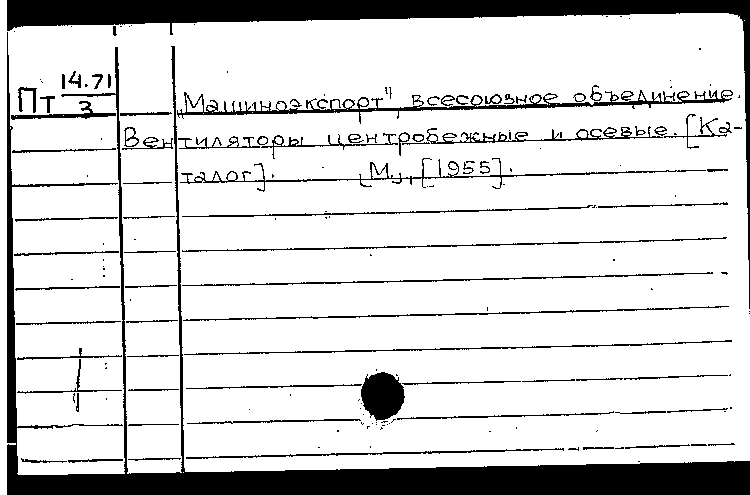 Пт 14.71/3
„Машиноэкспорт", всесоюзное объединение.
Вентиляторы центробежные и осевые. [Ка-
талог]. [М.], [1955].